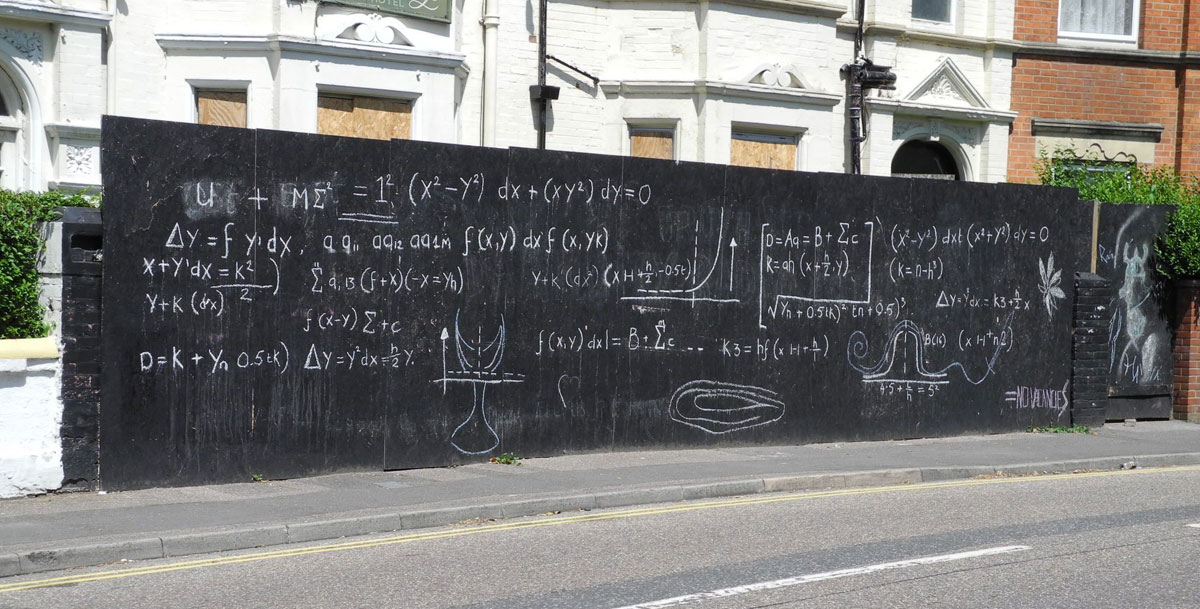 HOTEL
U + MΣ² = 1². (x²-y²) dx + (xy²) dy = 0
ΔY. = f y'dx, a q₁₁ aq₁₂ aq1m f(x,y) dx f(x, yk)
x + y'dx = k²/2 )
Σ a, 13 (f+x)(-x=yh)
Y+K (dx²) (x+1+h/2-0.5t)
Y+K (dx)
f(x-y) Σ + c
D=Aq=B+Σc
K=an (x+h/2,y)
√Yh + 0.5tk)² tn+0.5)³
(x²-y²) dxt (x²+y²) dy=0
(k=n-h³)
ΔY=y²dx = K3+h/2 x
D = K + Yn 0.5tk) ΔY=y²dx=h/2 Y.
f(x,y) dx|= B + Σc
K3 = hf (x+1+h/1)
B(16) (x+1+h2)
4.5+h/h = 5²
=NO VACANCIES